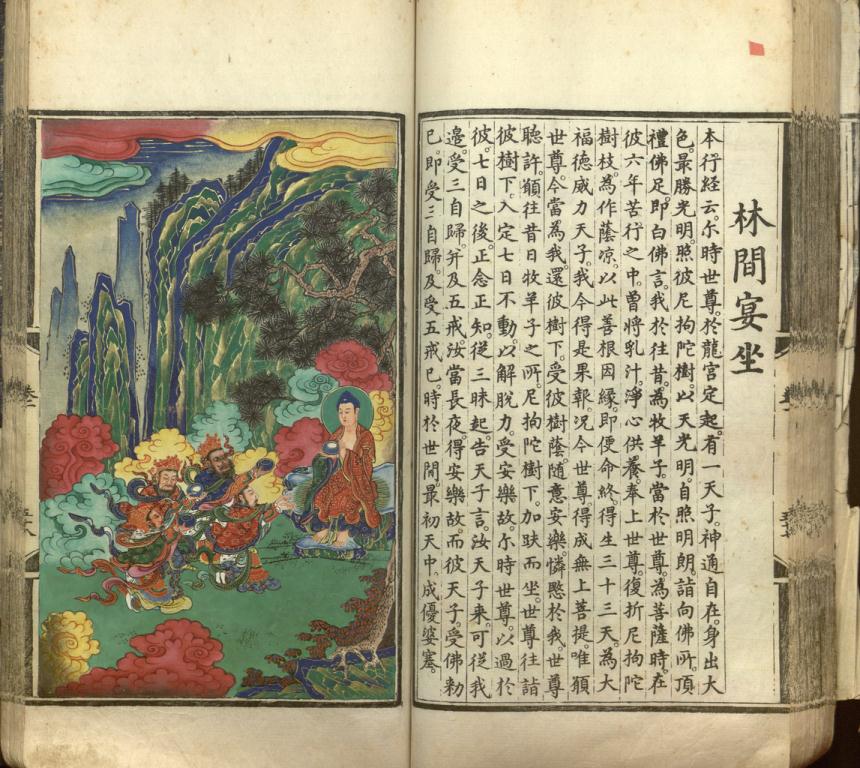 林間宴坐
本行経云。尒時世尊。於龍宮定起。有一天子。神通自在。身出大
色。最勝光明。照彼尼拘陀樹。以天光明。自照明朗。詣向佛所。頂
禮佛足。即白佛言。我於往昔。為牧羊子。當於世尊。為菩薩時。在
彼六年苦行之中。曽將乳汁。淨心供養。奉上世尊。復折尼拘陀
樹枝。為作蔭凉。以此善根因縁。即便命終。得生三十三天。為大
福德威力天子。我今得是果報。況今世尊。得成無上菩提。唯願
世尊。今當為我。還彼樹下。受彼樹蔭。隨意安樂。憐愍於我。世尊
聽許。願往昔日牧羊子之所。尼拘陀樹下。加趺而坐。世尊往詣
彼樹下。入定七日不動。以解脫力受安樂故。尒時世尊。以過於
彼。七日之後。正念正知。從三昧起。告天子言。汝天子来。可從我
邉。受三自歸。幷及五戒。汝當長夜。得安樂故。而彼天子。受佛勅
已。即受三自歸。及受五戒已。時於世間。最初天中。成優婆塞。